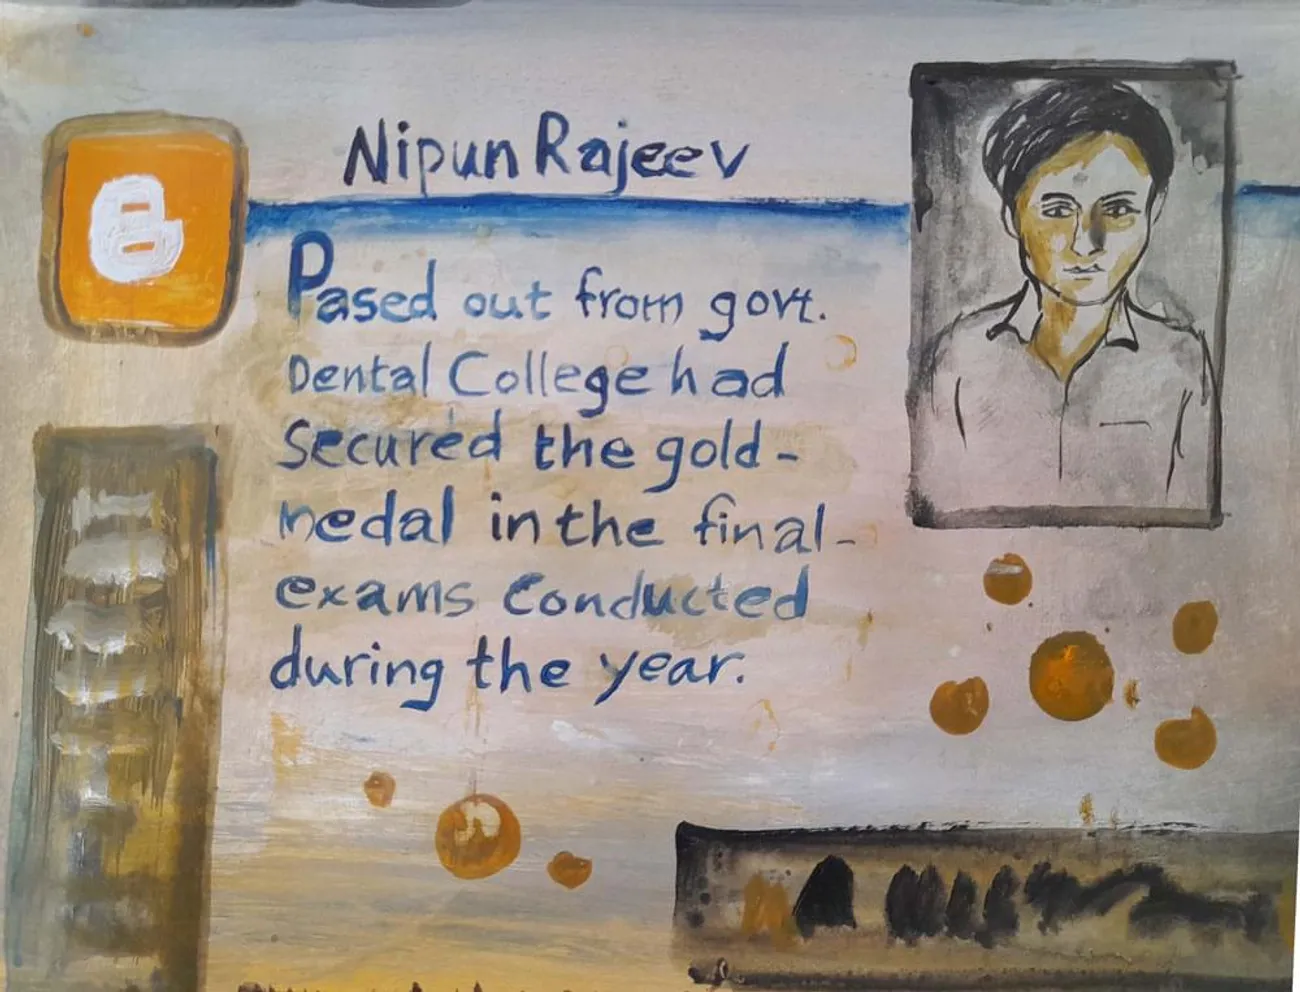 Nipun Rajeev
Pased out from govt.
Dental College had
Secured the gold-
medal in the final-
exams Conducted
during the year.